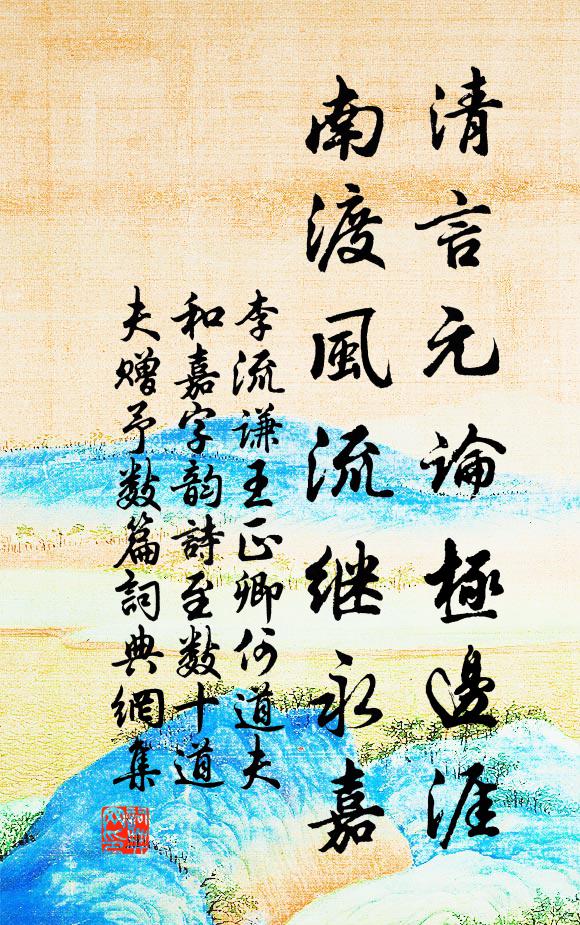 清言元論極邊涯
南渡風流继永嘉
李流谦王正卿何道夫
和嘉字韵詩至数十道
夫赠予数篇詞典網集